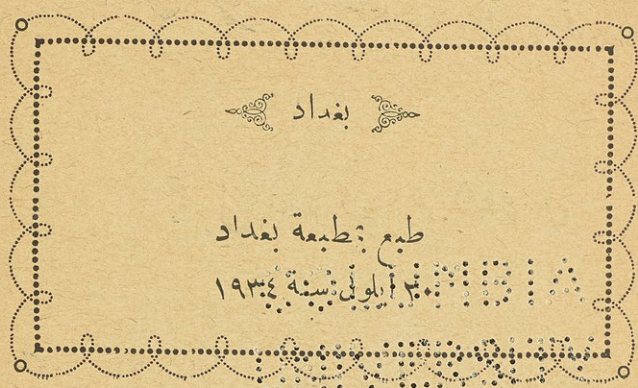 بغداد
طبع بمطبعة بغداد
٣٠ أيلول سنة ١٩٣٤